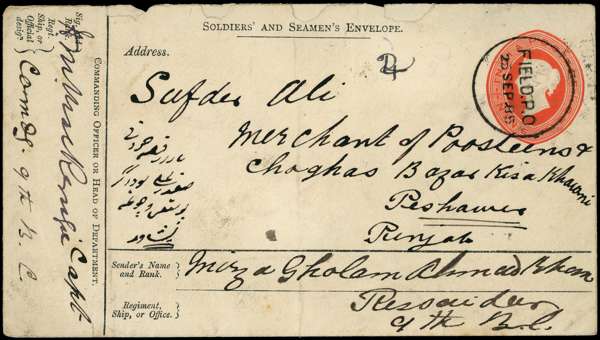 SOLDIERS' AND SEAMEN'S ENVELOPE.
Address.
FIELD.P.O
SEP.86
Sufder Ali
Merchant of Poosteens &
Choghas Bazar Kisa Khawni
Peshawer
Punjab
پشاور
Sender's Name and Rank.
Mirza Gholam Ahmed Khan
Regiment, Ship, or Office.
Ressaidar
9th B.C.
COMMANDING OFFICER OR HEAD OF DEPARTMENT.
Capt
Regt. Ship, or Official desigⁿ
Comdg. 9th B. C.